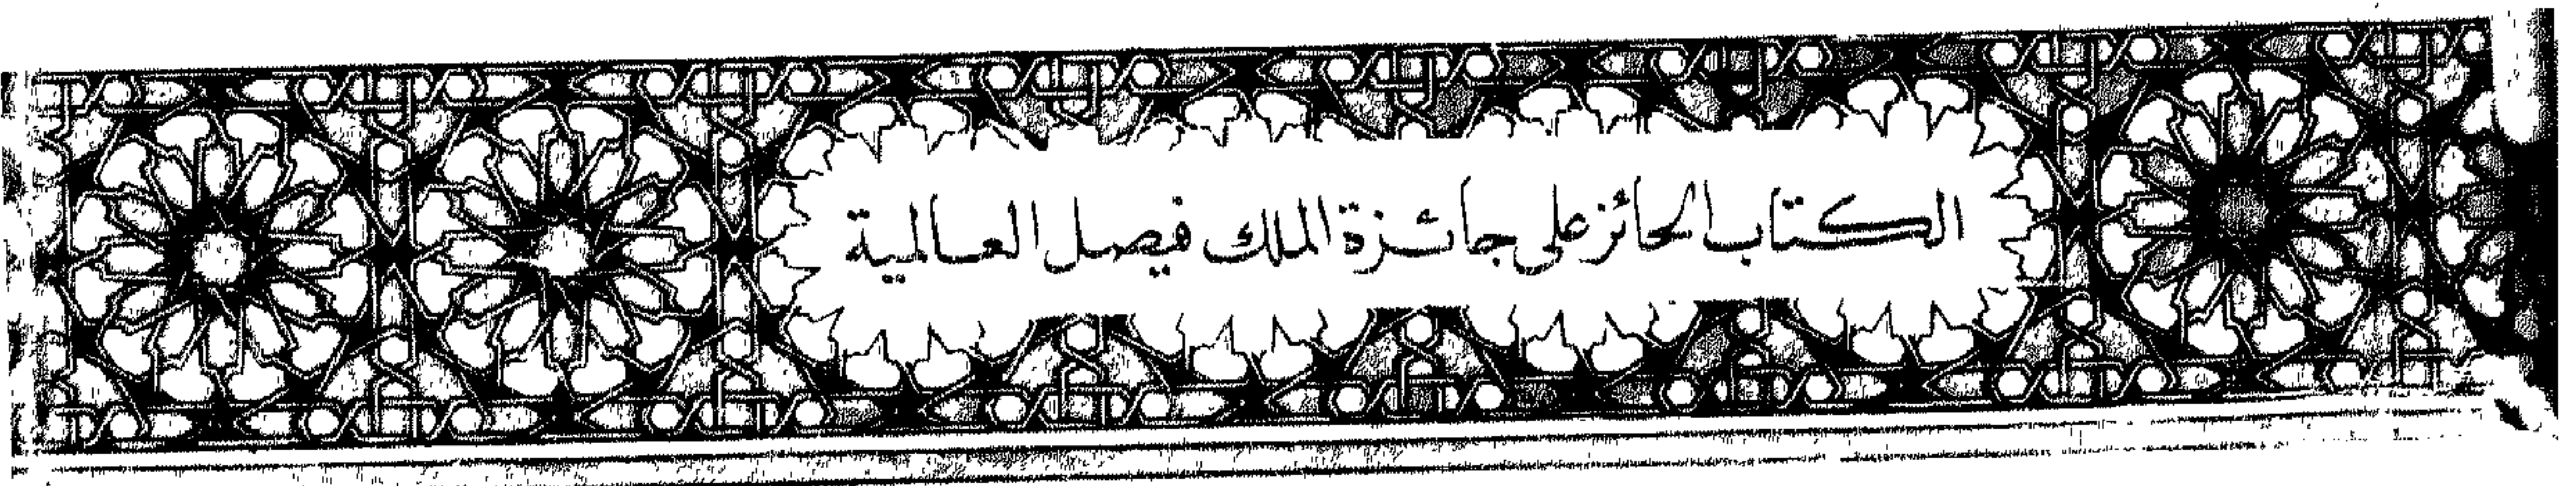 الكتاب الحائز على جائزة الملك فيصل العالمية